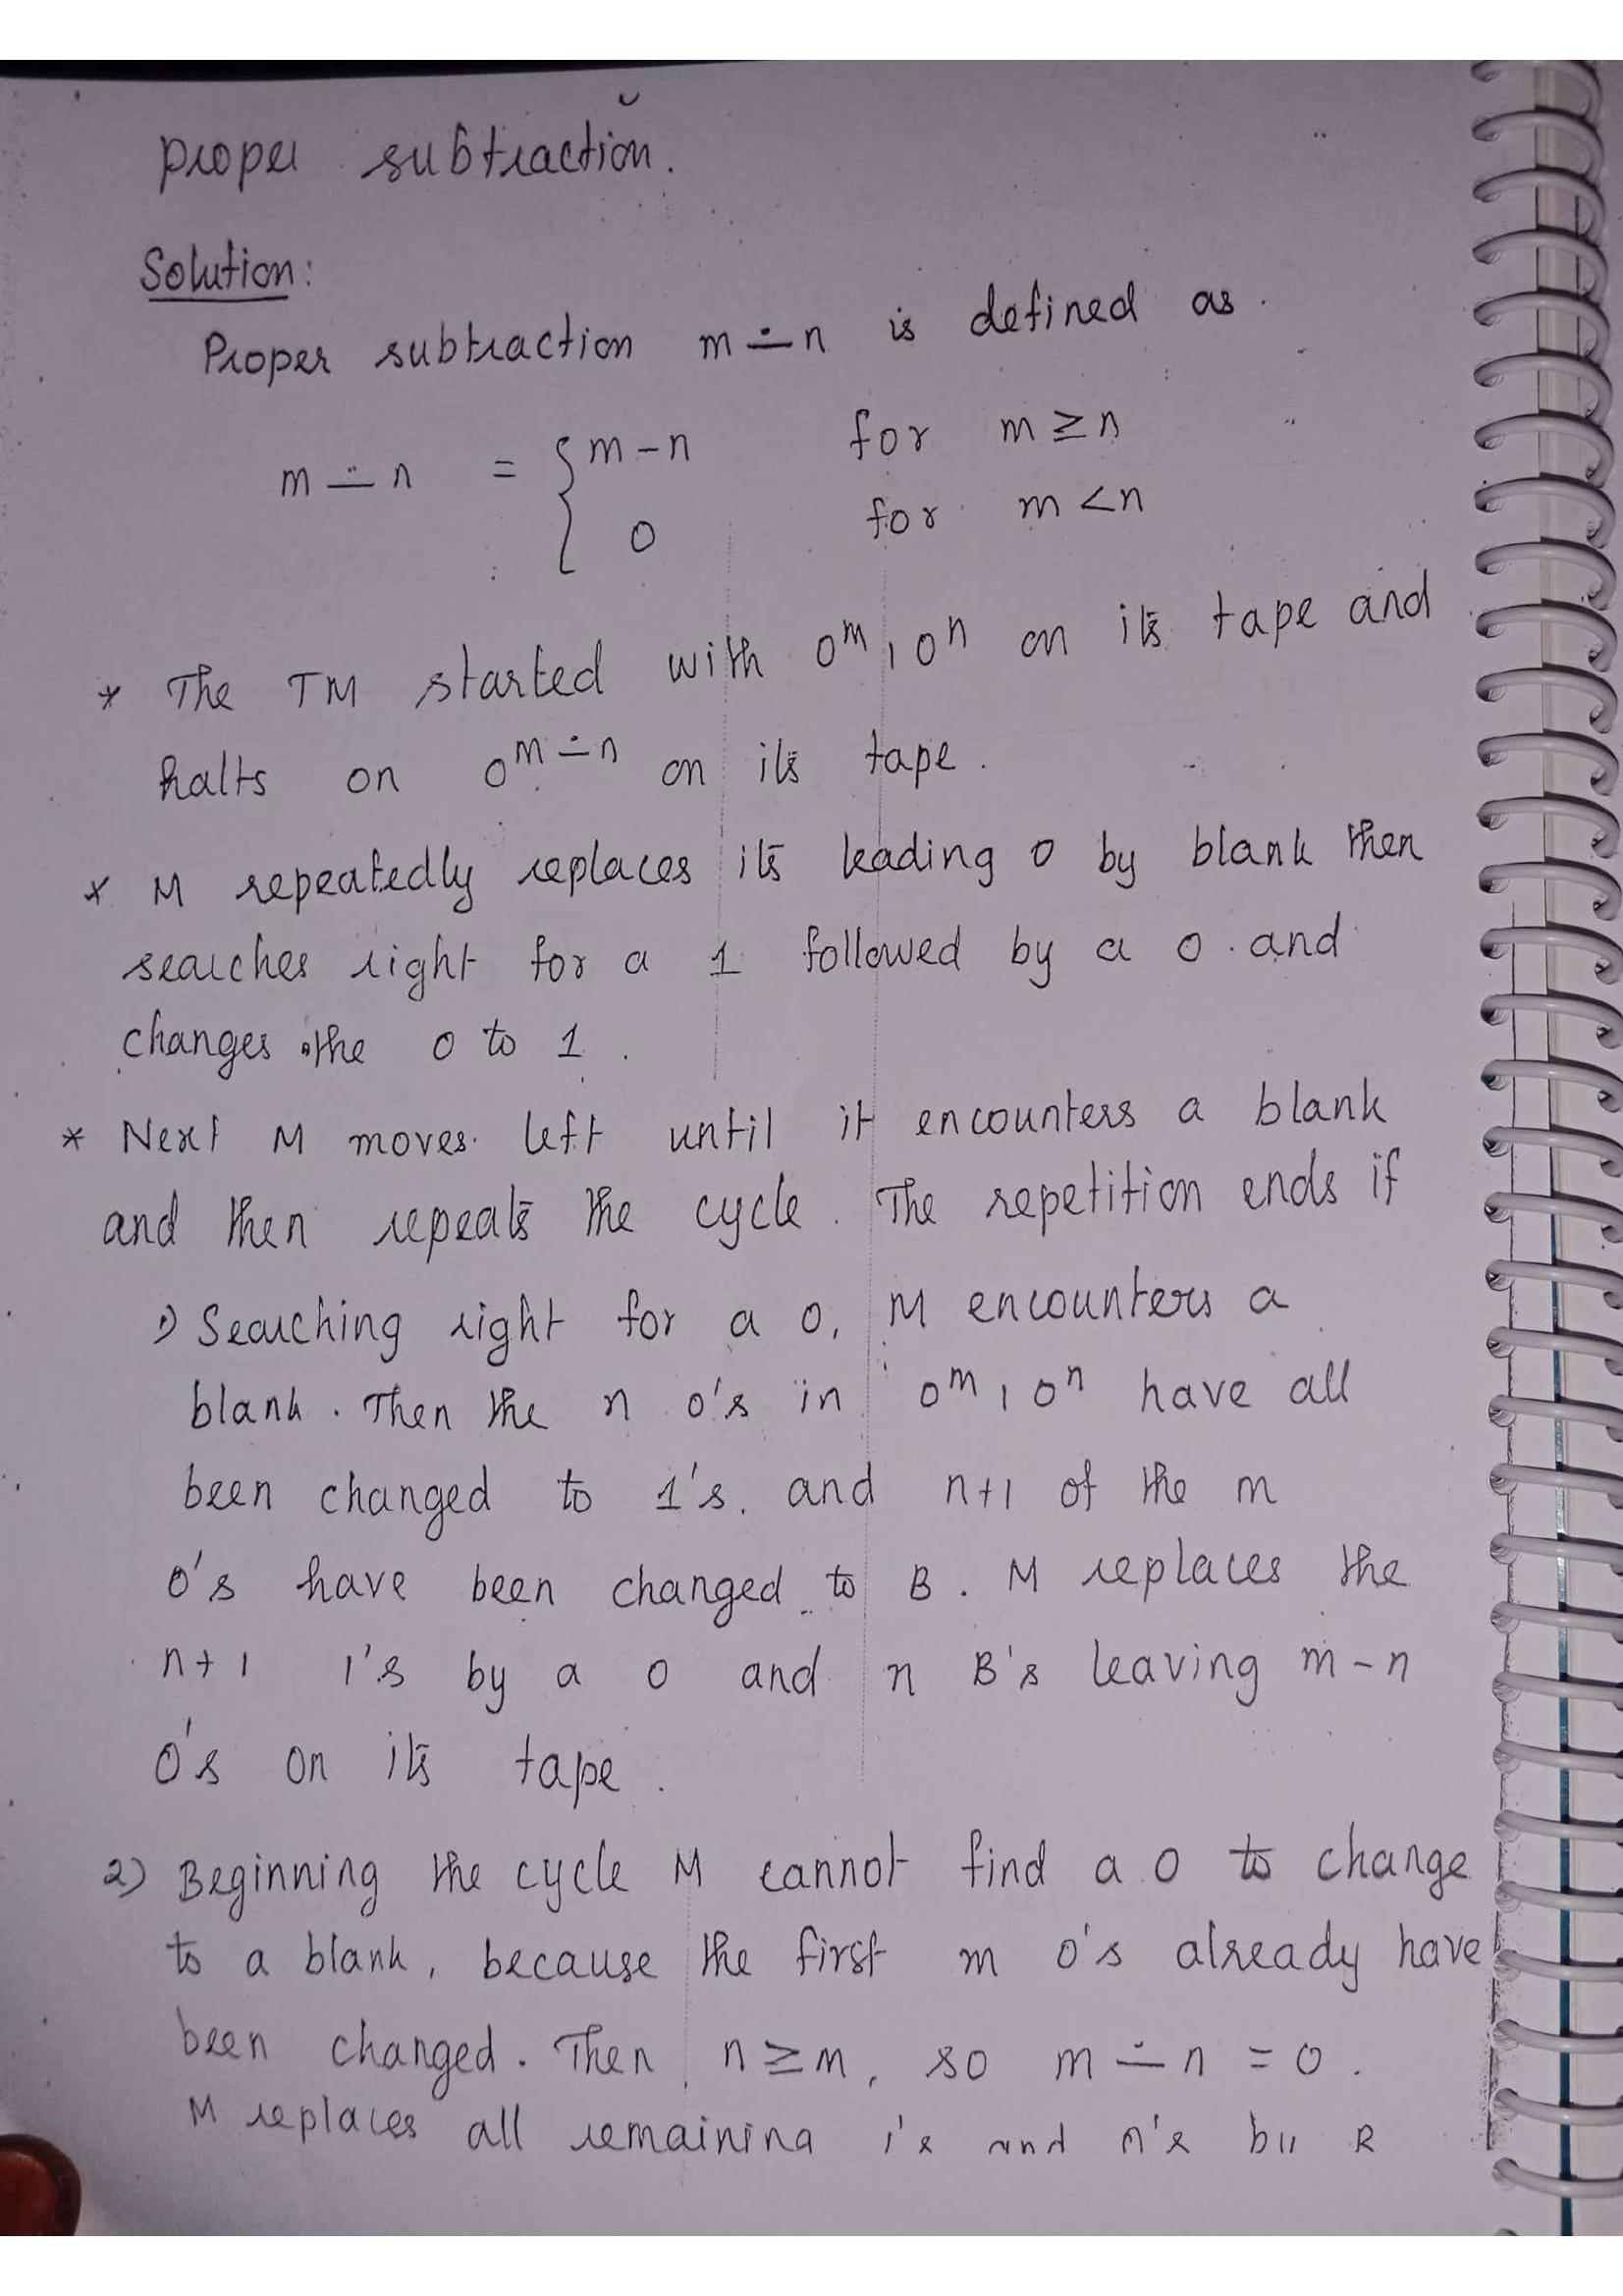 proper subtraction.
Solution:
Proper subtraction m ∸ n is defined as.
m ∸ n = { m-n for m ≥ n
0 for m < n
* The TM started with 0^m 1 0^n on its tape and
halts on 0^m∸n on its tape.
* M repeatedly replaces its leading 0 by blank then
searches right for a 1 followed by a 0 and
changes the 0 to 1.
* Next M moves left until it encounters a blank
and then repeats the cycle. The repetition ends if
1) Searching right for a 0, M encounters a
blank. Then the n 0's in 0^m 1 0^n have all
been changed to 1's. and n+1 of the m
0's have been changed to B. M replaces the
n+1 1's by a 0 and n B's leaving m-n
0's on its tape.
2) Beginning the cycle M cannot find a 0 to change
to a blank, because the first m 0's already have
been changed. Then n ≥ m, so m ∸ n = 0.
M replaces all remaining 1's and 0's by B